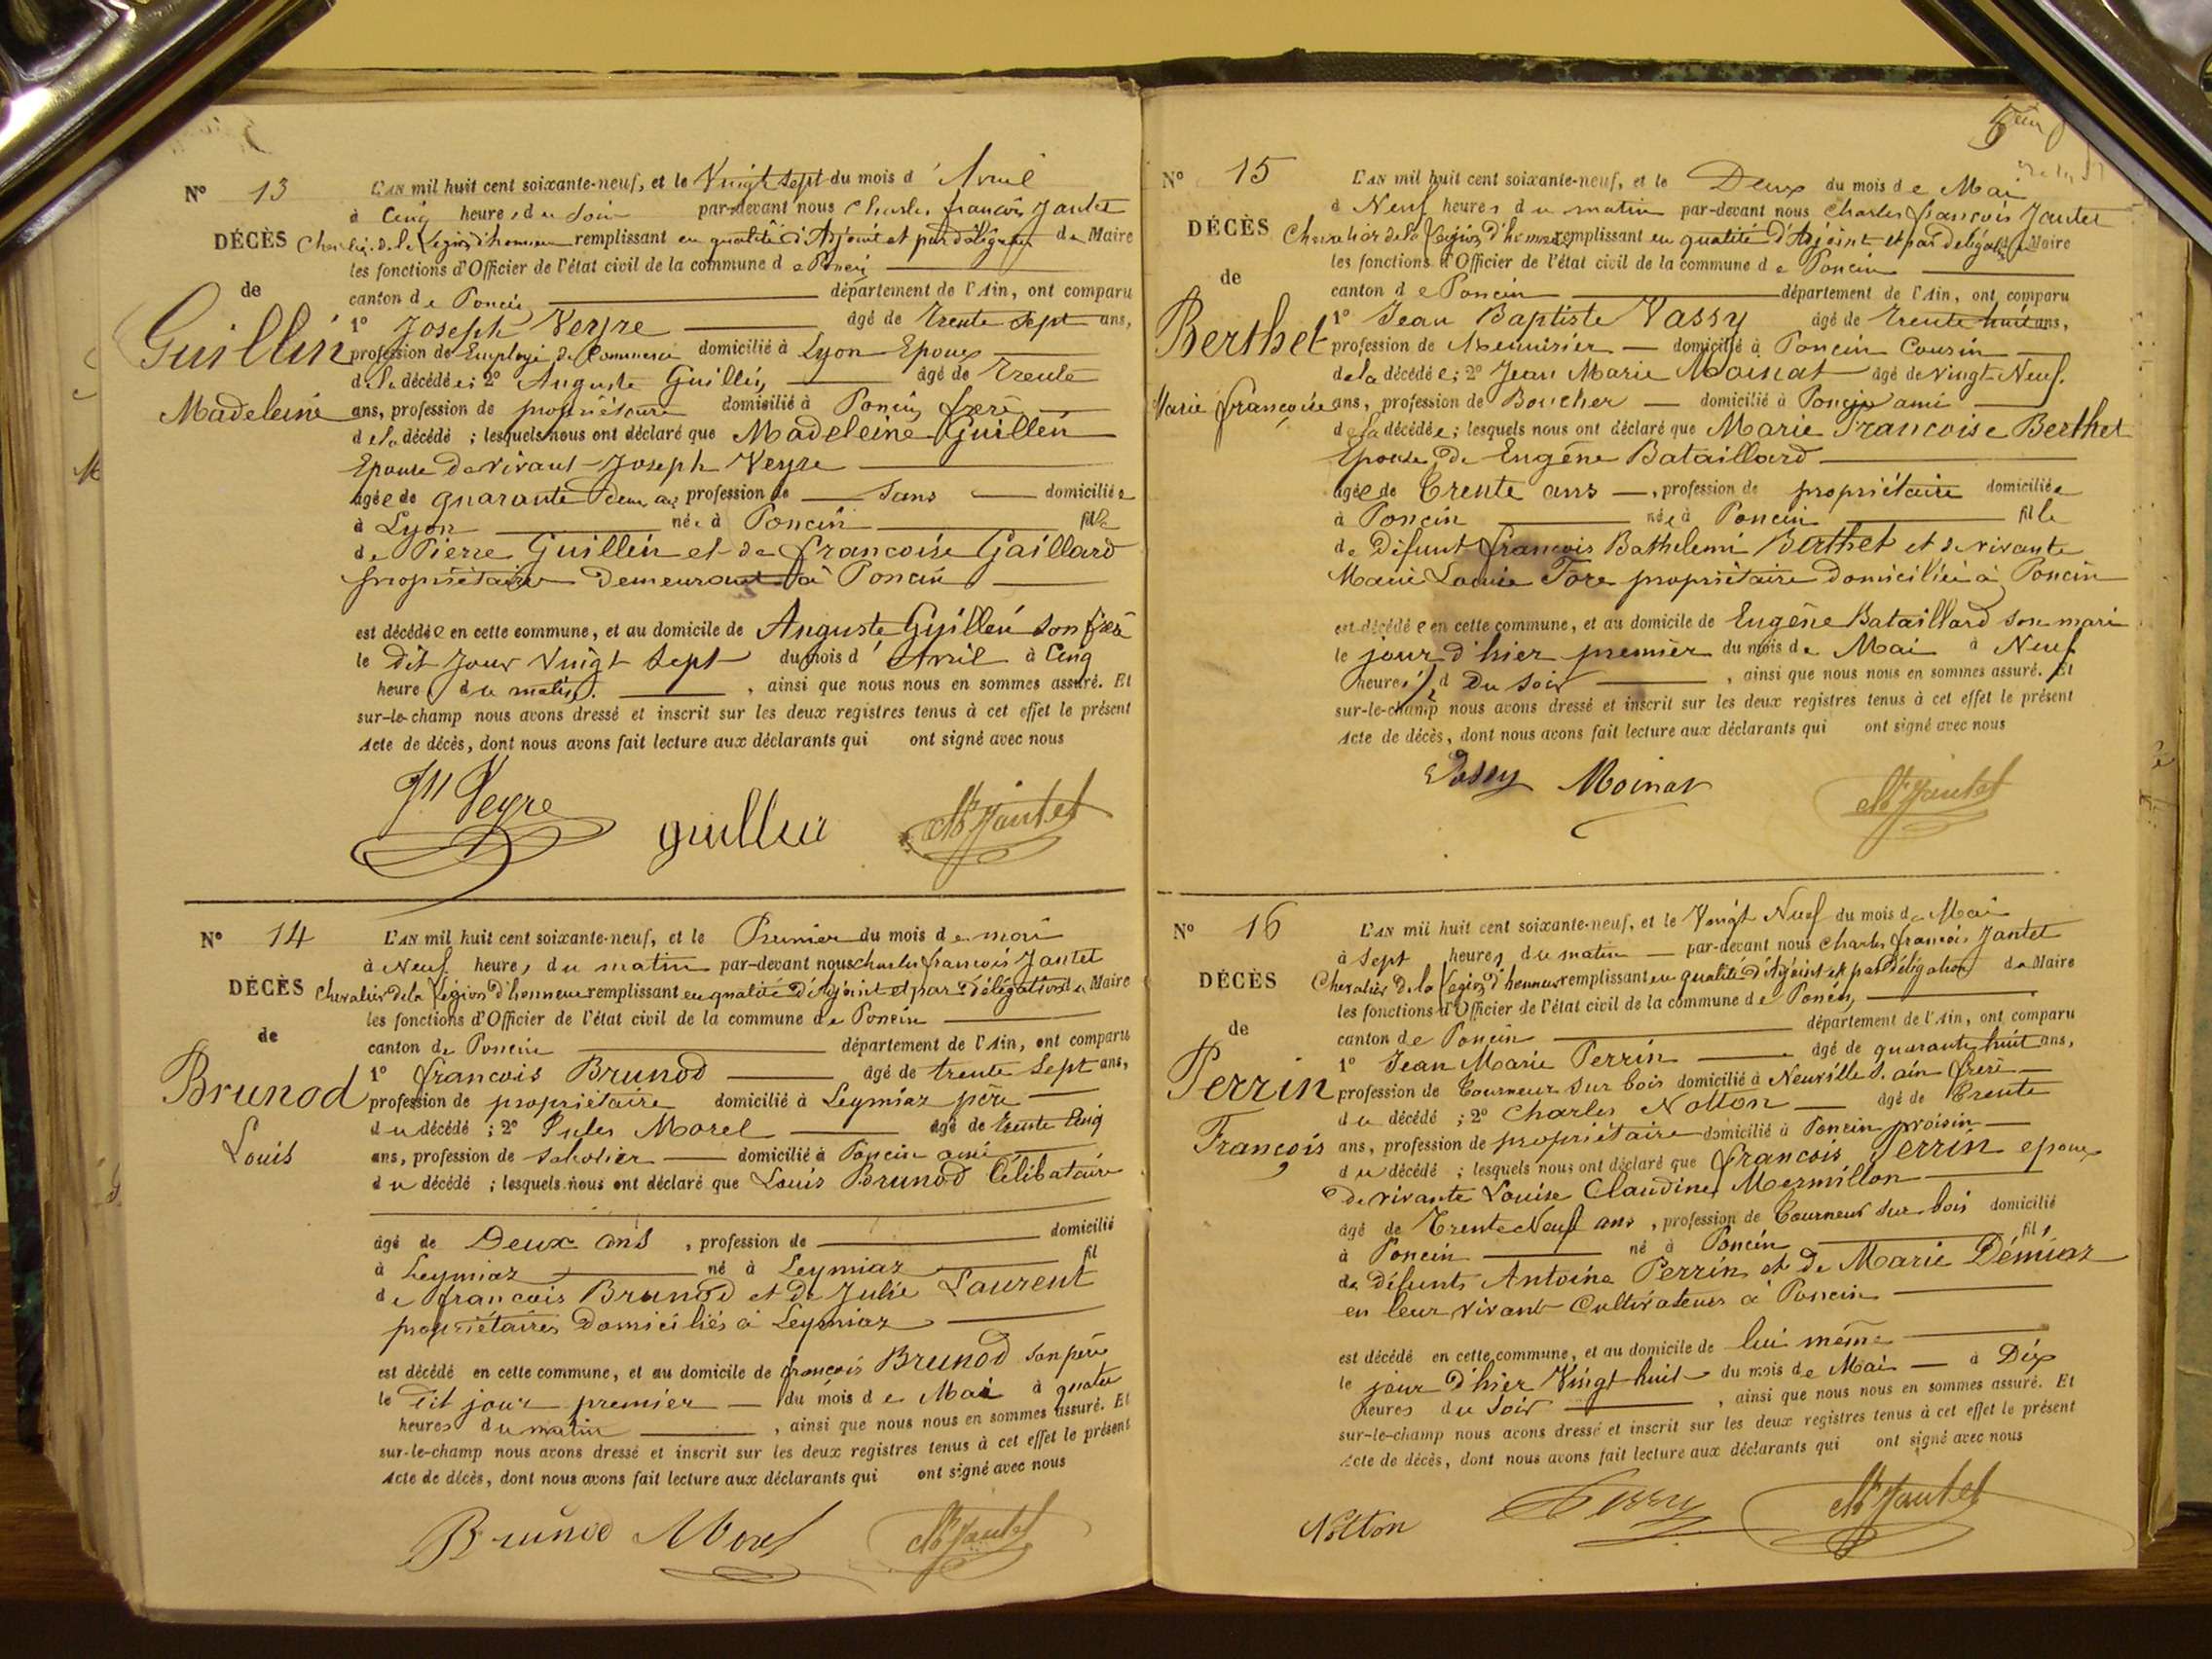 N° 13
L'AN mil huit cent soixante-neuf, et le Vingt sept du mois d'Avril
à Cinq heures du Soir par-devant nous Charles françois Jantet
DÉCÈS
Chevalier de la Légion d'honneur remplissant en qualité d'Adjoint et par délégation du Maire
les fonctions d'Officier de l'état civil de la commune de Poncin
de
canton de Poncin département de l'Ain, ont comparu
Guillin
1° Joseph Veyre âgé de trente sept ans,
profession de Employé de Commerce domicilié à Lyon Epoux
de la décédée; 2° Auguste Guillin âgé de trente
Madeleine
ans, profession de propriétaire domicilié à Poncin frère
de la décédé ; lesquels nous ont déclaré que Madeleine Guillin
Epouse de vivant Joseph Veyre
âgée de quarante deux ans profession de Sans domiciliée
à Lyon née à Poncin fille
de Pierre Guillin et de françoise Gaillard
propriétaires demeurant à Poncin
est décédée en cette commune, et au domicile de Auguste Guillin son frère
le dit Jour Vingt Sept du mois d'Avril à Cinq
heures du matin. , ainsi que nous nous en sommes assuré. Et
sur-le-champ nous avons dressé et inscrit sur les deux registres tenus à cet effet le présent
Acte de décès, dont nous avons fait lecture aux déclarants qui ont signé avec nous
Jh Veyre guillin Ch Jantet
N° 14
L'AN mil huit cent soixante-neuf, et le Premier du mois de mai
à Neuf heures du matin par-devant nous charles francois Jantet
DÉCÈS
Chevalier de la Légion d'honneur remplissant en qualité d'Adjoint et par Délégation du Maire
les fonctions d'Officier de l'état civil de la commune de Poncin
de
canton de Poncin département de l'Ain, ont comparu
Brunod
1° francois Brunod âgé de trente Sept ans,
profession de propriétaire domicilié à Leymiaz père
du décédé ; 2° Jules Morel âgé de trente Cinq
Louis
ans, profession de Sabotier domicilié à Poncin ami
du décédé ; lesquels nous ont déclaré que Louis Brunod Célibataire
âgé de Deux ans , profession de domicilié
à Leymiaz né à Leymiaz fil
de francois Brunod et de Julie Laurent
propriétaires domiciliés à Leymiaz
est décédé en cette commune, et au domicile de françois Brunod son père
le dit jour premier du mois de Mai à quatre
heures du matin , ainsi que nous nous en sommes assuré. Et
sur-le-champ nous avons dressé et inscrit sur les deux registres tenus à cet effet le présent
Acte de décès, dont nous avons fait lecture aux déclarants qui ont signé avec nous
Brunod Morel Ch Jantet
N° 15
L'AN mil huit cent soixante-neuf, et le Deux du mois de Mai
à Neuf heures du matin par-devant nous Charles françois Jantet
DÉCÈS
Chevalier de la Légion d'honneur remplissant en qualité d'Adjoint et par délégation du Maire
les fonctions d'Officier de l'état civil de la commune de Poncin
de
canton de Poncin département de l'Ain, ont comparu
Berthet
1° Jean Baptiste Vassy âgé de trente huit ans,
profession de Menuisier domicilié à Poncin Cousin
de la décédée; 2° Jean Marie Moinat âgé de Vingt Neuf.
Marie françoise
ans, profession de Boucher domicilié à Poncin ami
de la décédée; lesquels nous ont déclaré que Marie Francoise Berthet
Epouse de Eugène Bataillard
âgée de trente ans , profession de propriétaire domiciliée
à Poncin née à Poncin fille
de Défunt françois Bathelemi Berthet et de vivante
Marie Louise Fore propriétaire domiciliée à Poncin
est décédée en cette commune, et au domicile de Eugène Bataillard son mari
le jour d'hier premier du mois de Mai à Neuf
heures ½ d Du Soir , ainsi que nous nous en sommes assuré. Et
sur-le-champ nous avons dressé et inscrit sur les deux registres tenus à cet effet le présent
Acte de décès, dont nous avons fait lecture aux déclarants qui ont signé avec nous
Vassy Moinat Ch Jantet
N° 16
L'AN mil huit cent soixante-neuf, et le Vingt Neuf du mois de Mai
à Sept heures du matin par-devant nous Charles françois Jantet
DÉCÈS
Chevalier de la Légion d'honneur remplissant en qualité d'Adjoint et par Délégation du Maire
les fonctions d'Officier de l'état civil de la commune de Poncin
de
canton de Poncin département de l'Ain, ont comparu
Perrin
1° Jean Marie Perrin âgé de quarante huit ans,
profession de Tourneur sur bois domicilié à Neuville s. ain frère
du décédé ; 2° Charles Notton âgé de trente
François
ans, profession de propriétaire domicilié à Poncin voisin
du décédé ; lesquels nous ont déclaré que françois Perrin epoux
de vivante Louise Claudine Mermillon
âgé de Trente Neuf ans , profession de Tourneur sur bois domicilié
à Poncin né à Poncin fils
de défunts Antoine Perrin et de Marie Démiaz
en leur vivant Cultivateurs à Poncin
est décédé en cette commune, et au domicile de lui même
le jour d'hier Vingt huit du mois de Mai à Dix
heures du Soir , ainsi que nous nous en sommes assuré. Et
sur-le-champ nous avons dressé et inscrit sur les deux registres tenus à cet effet le présent
Acte de décès, dont nous avons fait lecture aux déclarants qui ont signé avec nous
Notton Ch Jantet